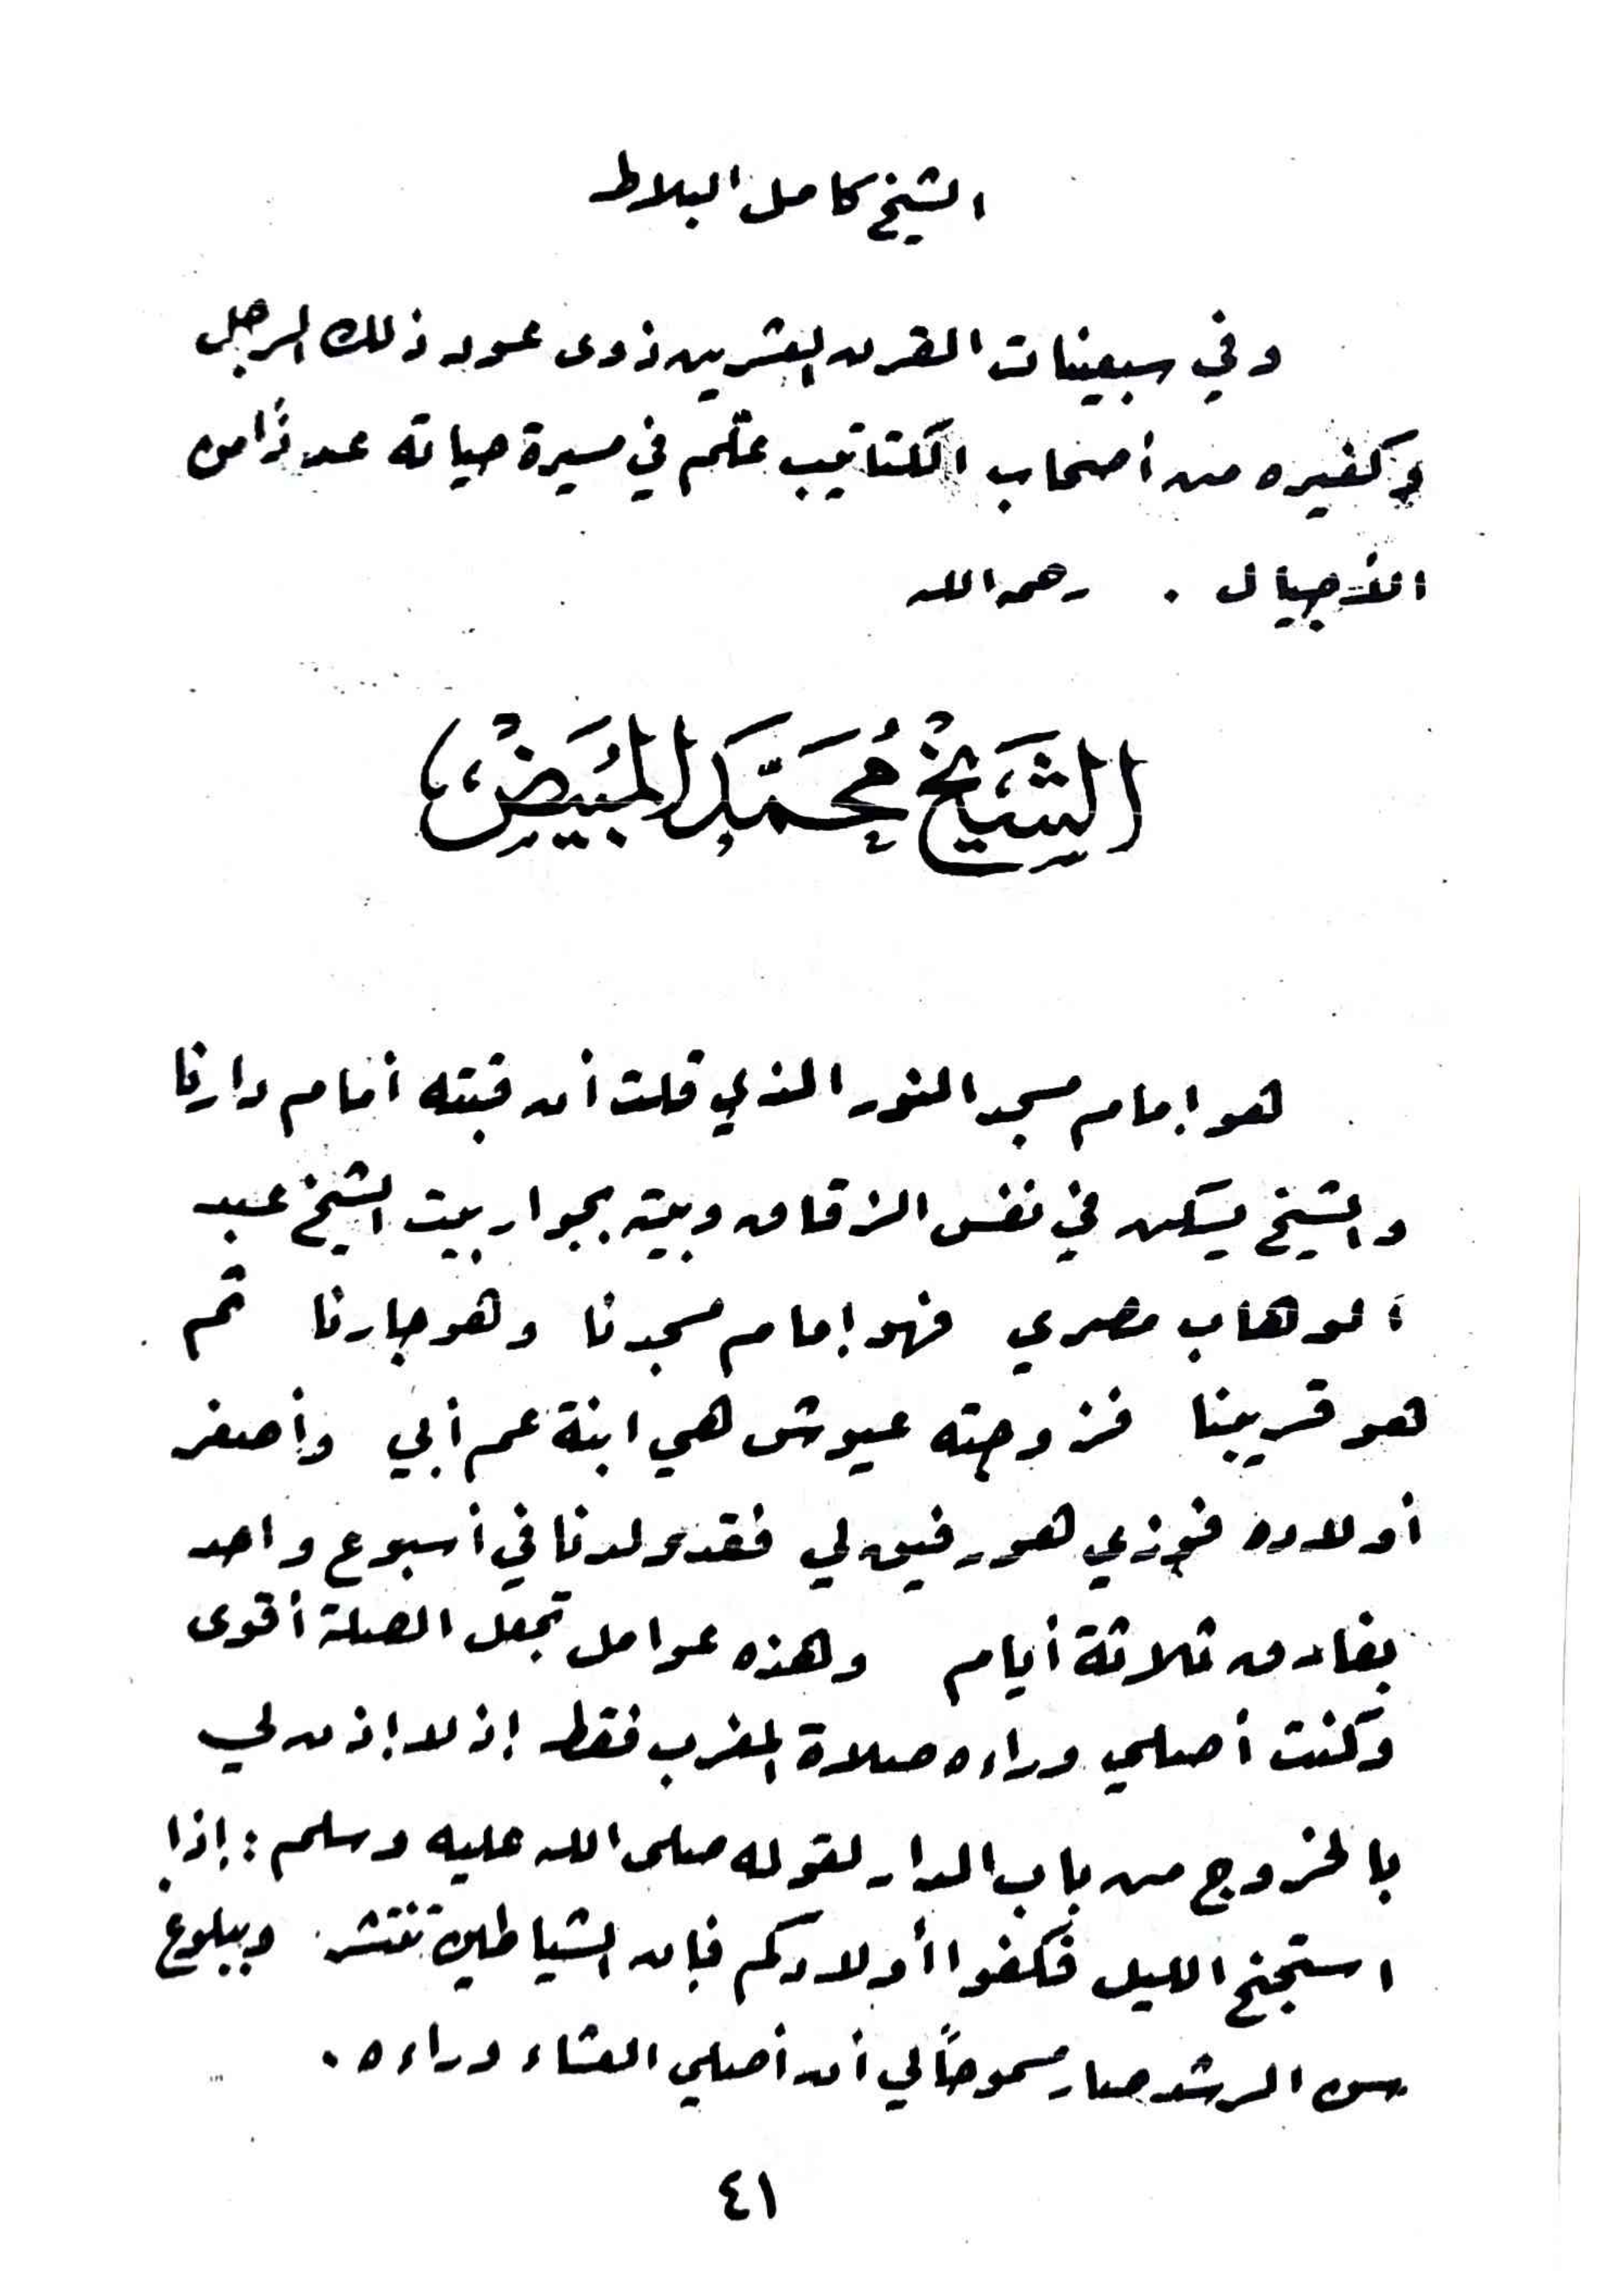 الشيخ كامل البلاط
وفي سبعينات القرن العشرين ذوى عود ذلك الرجل
وكغيره من أصحاب الكتاتيب علّم في مسيرة حياته عدداً من
الأجيال . رحمه الله
الشَيْخ مُحَمَّد المُبَيَّضْ
هو إمام مسجد النور الذي قلت أن قبته أمام دارنا
والشيخ يسكن في نفس الزقاق وبيته بجوار بيت الشيخ عبد
الوهاب مصري فهو إمام مسجدنا وهو جارنا ثم
هو قريبنا فزوجته عيوش هي ابنة عم أبي وأصغر
أولاده فوزي هو رفيق لي فقد ولدنا في أسبوع واحد
بفارق ثلاثة أيام وهذه عوامل تجعل الصلة أقوى
وكنت أصلي وراءه صلاة المغرب فقط إذ لا إذن لي
بالخروج من باب الدار لقوله صلى الله عليه وسلم : إذا
استجنح الليل فكفوا أولادكم فإن الشياطين تنتشر وببلوغ
سن الرشد صار مسموحاً لي أن أصلي العشاء وراءه .
٤١